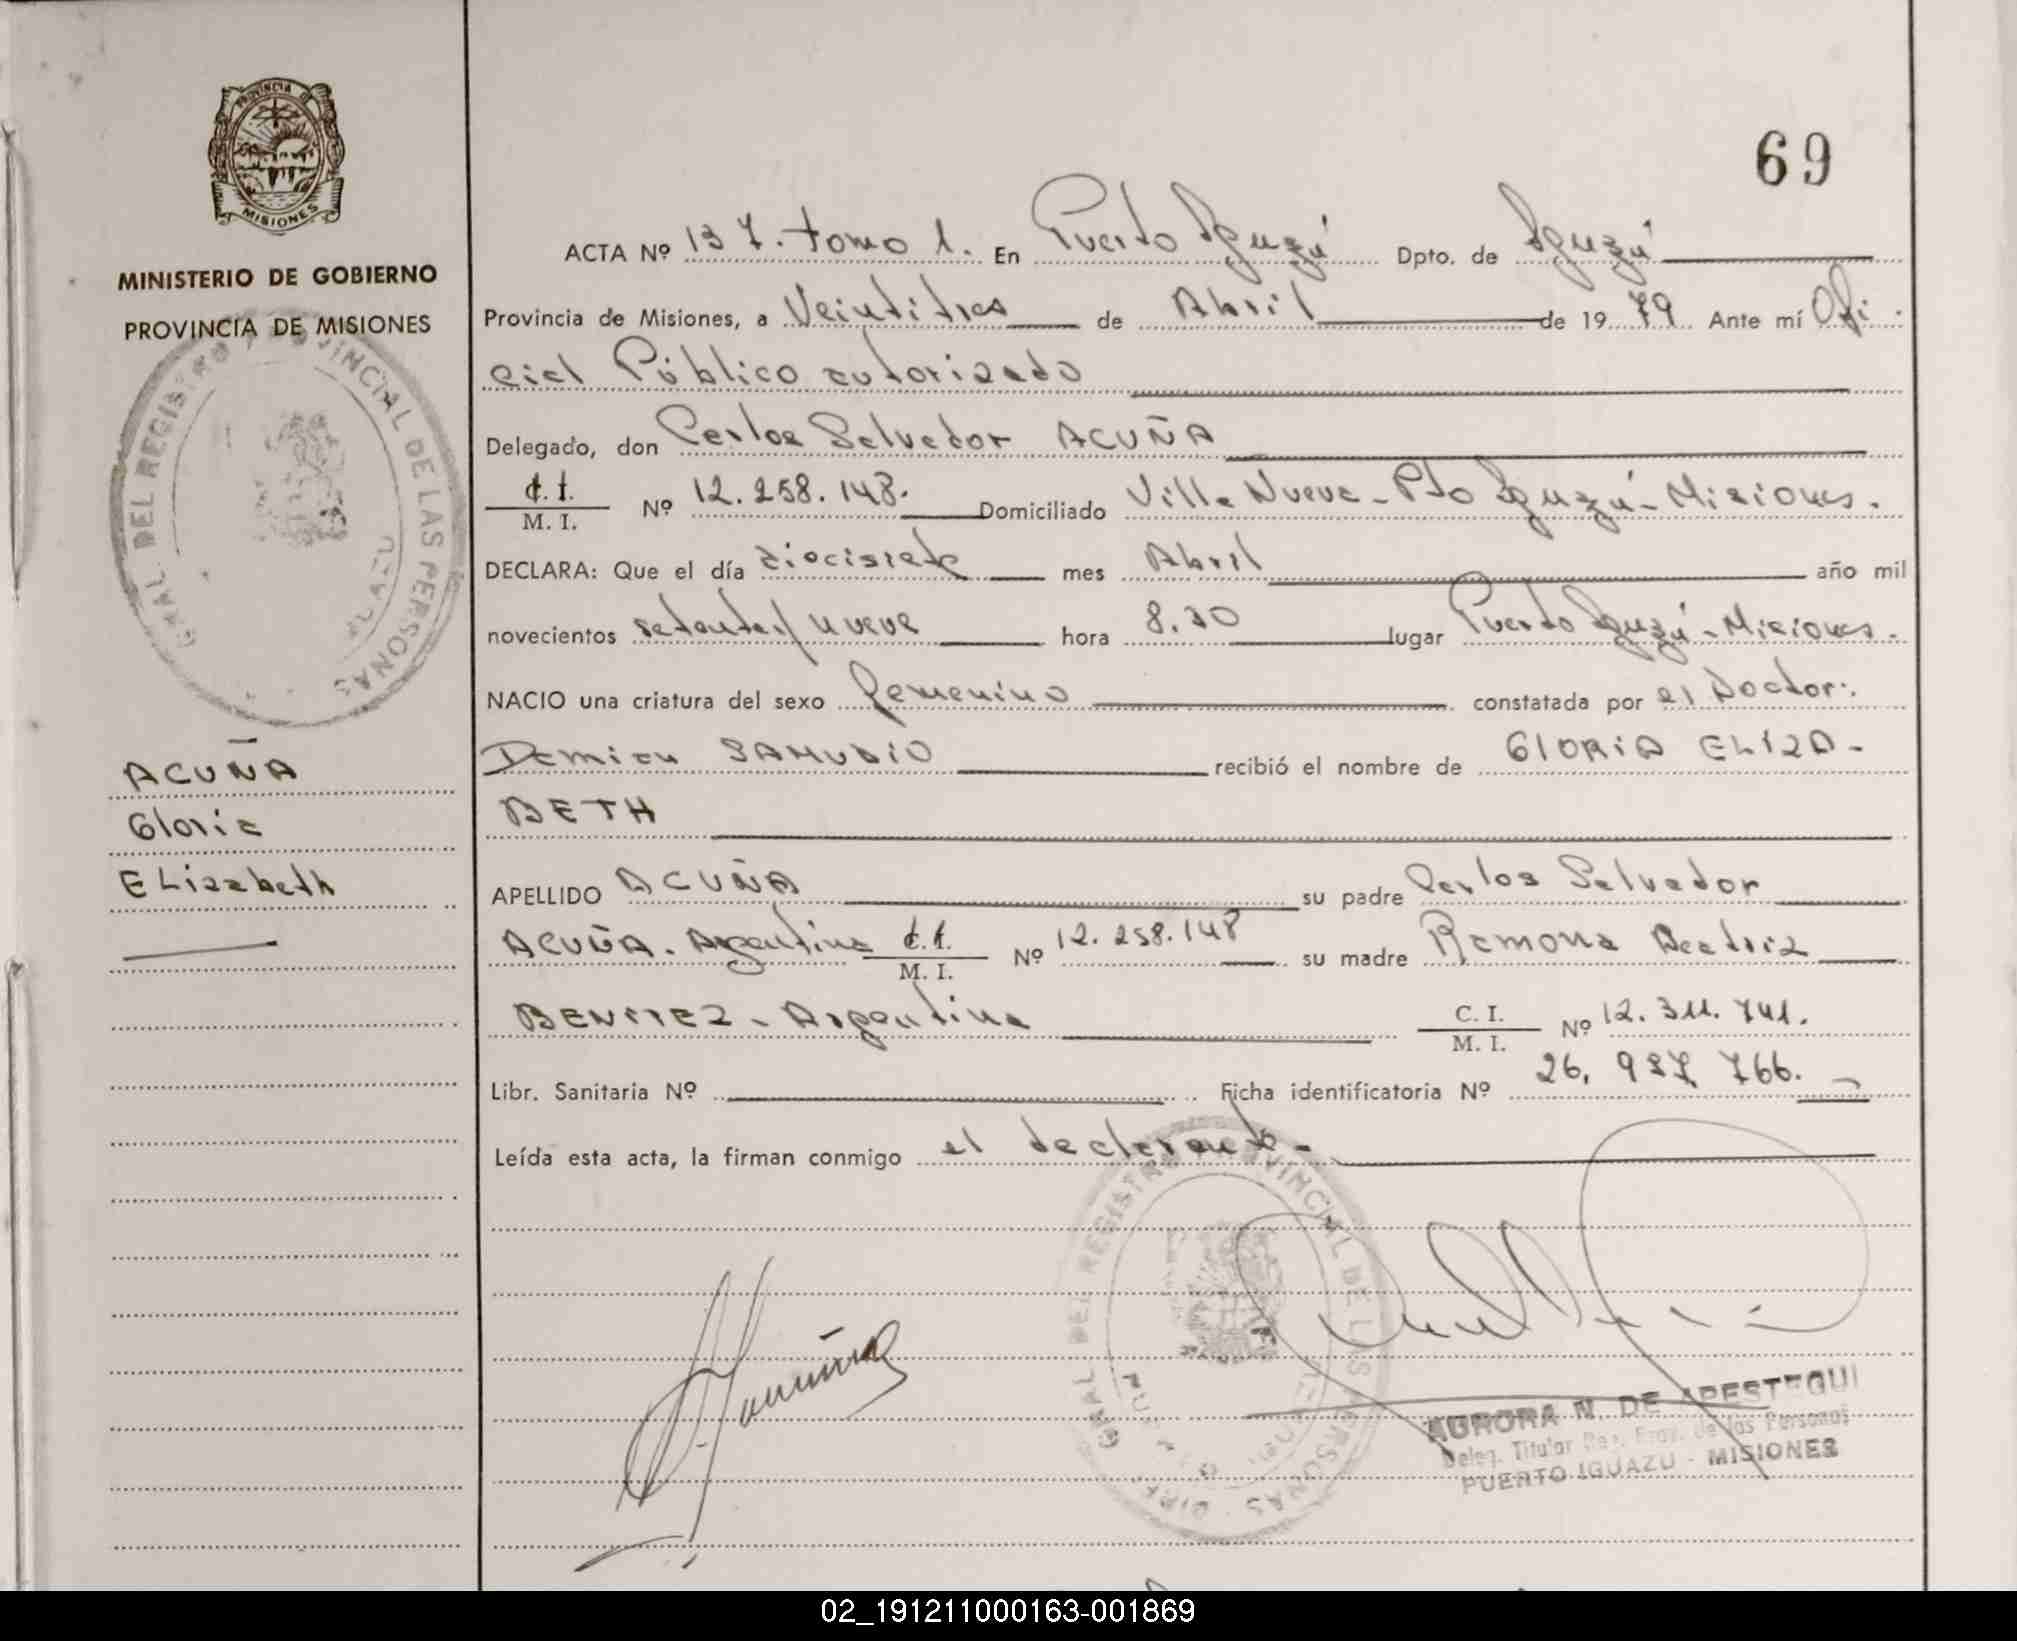 PROVINCIA DE
MISIONES
MINISTERIO DE GOBIERNO
PROVINCIA DE MISIONES
GRAL. DEL REGISTRO PROVINCIAL DE LAS PERSONAS
ACUÑA
Gloria
Elizabeth
69
ACTA Nº 137. tomo 1. En Puerto Iguazú Dpto. de Iguazú
Provincia de Misiones, a Veintitres de Abril de 1979 Ante mí Ofi
cial Público autorizado
Delegado, don Carlos Salvador ACUÑA
C. I.
M. I. Nº 12.258.148. Domiciliado Villa Nueva - Pto Iguazú - Misiones.
DECLARA: Que el día diecisiete mes Abril año mil
novecientos setenta y nueve hora 8.30 lugar Puerto Iguazú - Misiones.
NACIO una criatura del sexo femenino constatada por el Doctor:
Damian SAMUDIO recibió el nombre de GLORIA ELIZA-
BETH
APELLIDO ACUÑA su padre Carlos Salvador
ACUÑA. Argentino C. I.
M. I. Nº 12.258.148 su madre Ramona Beatriz
BENITEZ - Argentina C. I.
M. I. Nº 12.311.741.
Libr. Sanitaria Nº Ficha identificatoria Nº 26.937.766.
Leída esta acta, la firman conmigo el declarante -
GRAL. DEL REGISTRO PROVINCIAL DE LAS PERSONAS
AURORA N. DE APESTEGUI
Deleg. Titular Reg. Prov. de las Personas
PUERTO IGUAZU - MISIONES
02_191211000163-001869